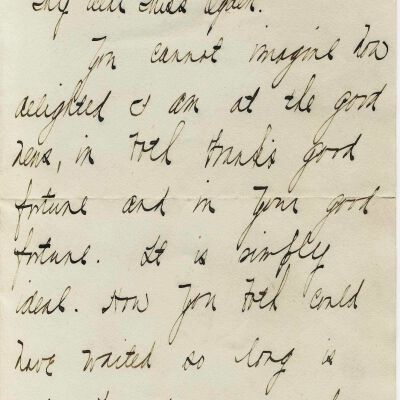 My dear Miss
You cannot imagine how
delighted I am at the good
news, in both Frank's good
fortune and in your good
fortune. It is simply
ideal. How you both could
have waited so long is